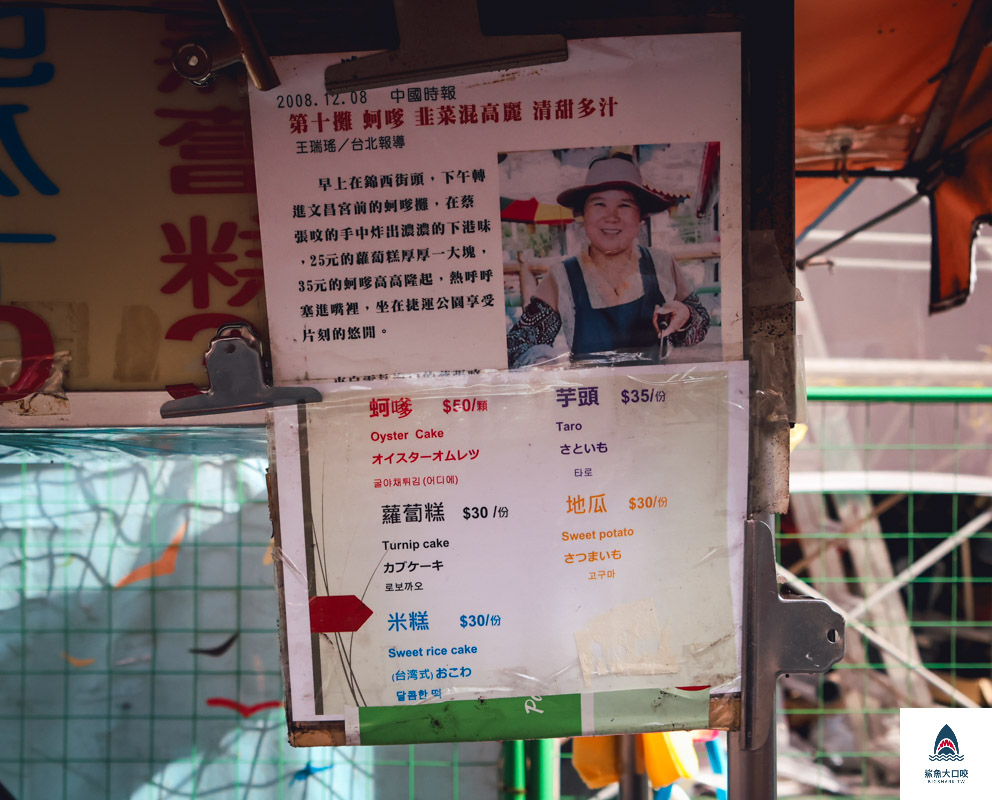 2008.12.08 中國時報
第十攤 蚵嗲 韭菜混高麗 清甜多汁
王瑞瑤／台北報導
早上在錦西街頭，下午轉
進文昌宮前的蚵嗲攤，在蔡
張呅的手中炸出濃濃的下港味
，25元的蘿蔔糕厚厚一大塊，
35元的蚵嗲高高隆起，熱呼呼
塞進嘴裡，坐在捷運公園享受
片刻的悠閒。
蚵嗲 $50/顆
Oyster Cake
オイスターオムレツ
굴야채튀김 (어디에)
蘿蔔糕 $30 /份
Turnip cake
カブケーキ
로보까오
米糕 $30/份
Sweet rice cake
(台湾式) おこわ
달콤한 떡
芋頭 $35/份
Taro
さといも
타로
地瓜 $30/份
Sweet potato
さつまいも
고구마
鯊魚大口咬
BIGSHARK.TW